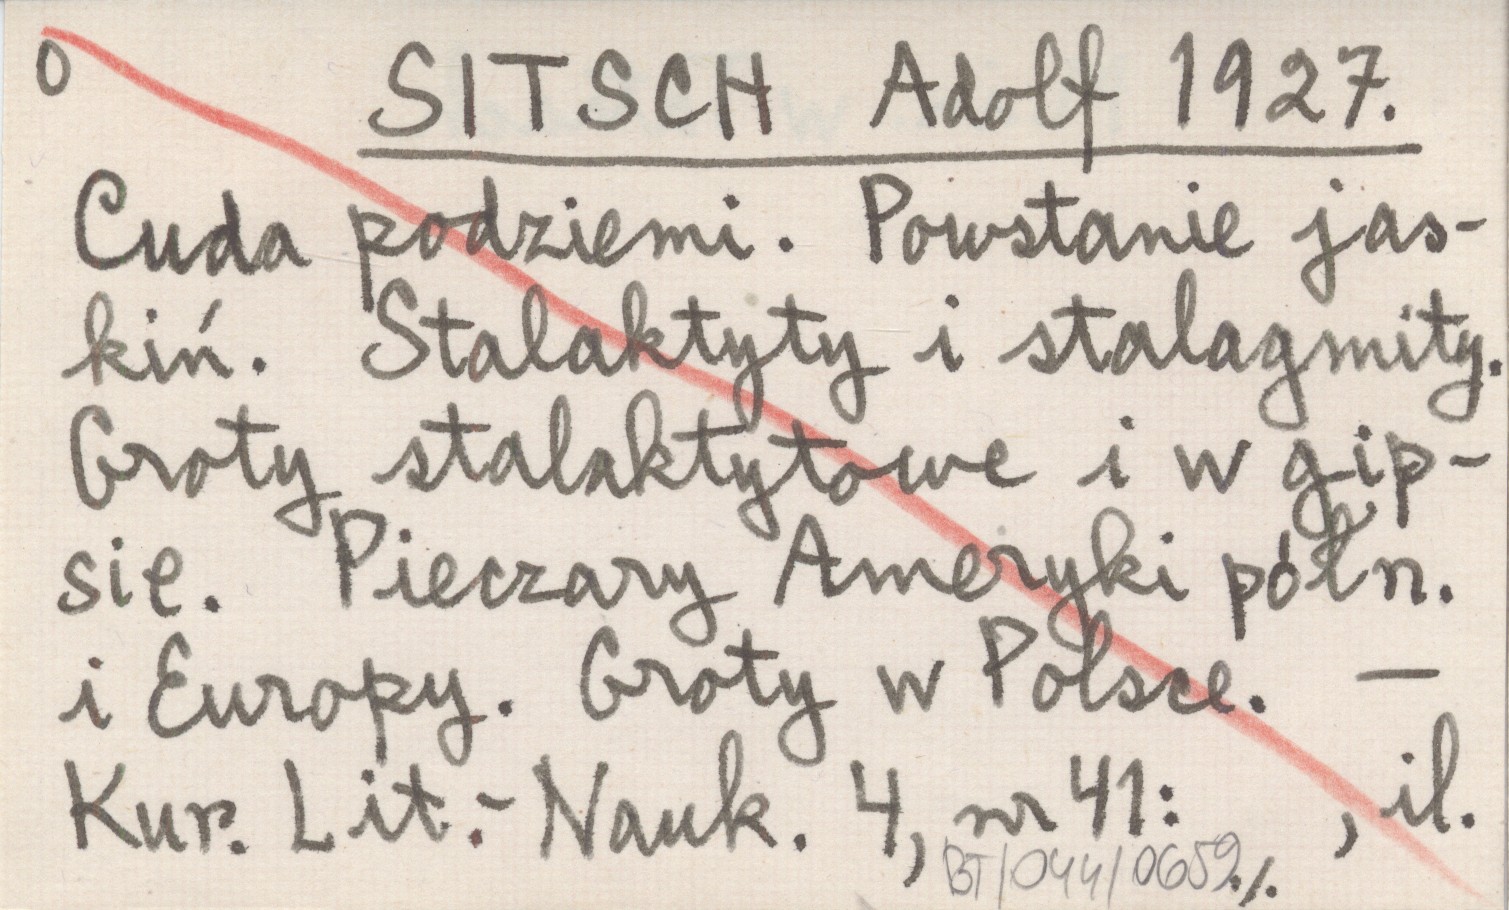 0 SITSCH Adolf 1927.
Cuda podziemi. Powstanie jas-
kiń. Stalaktyty i stalagmity.
Groty stalaktytowe i w gip-
sie. Pieczary Ameryki półn.
i Europy. Groty w Polsce. —
Kur. Lit.-Nauk. 4, nr 41: , il.
BT/044/0659 ./.